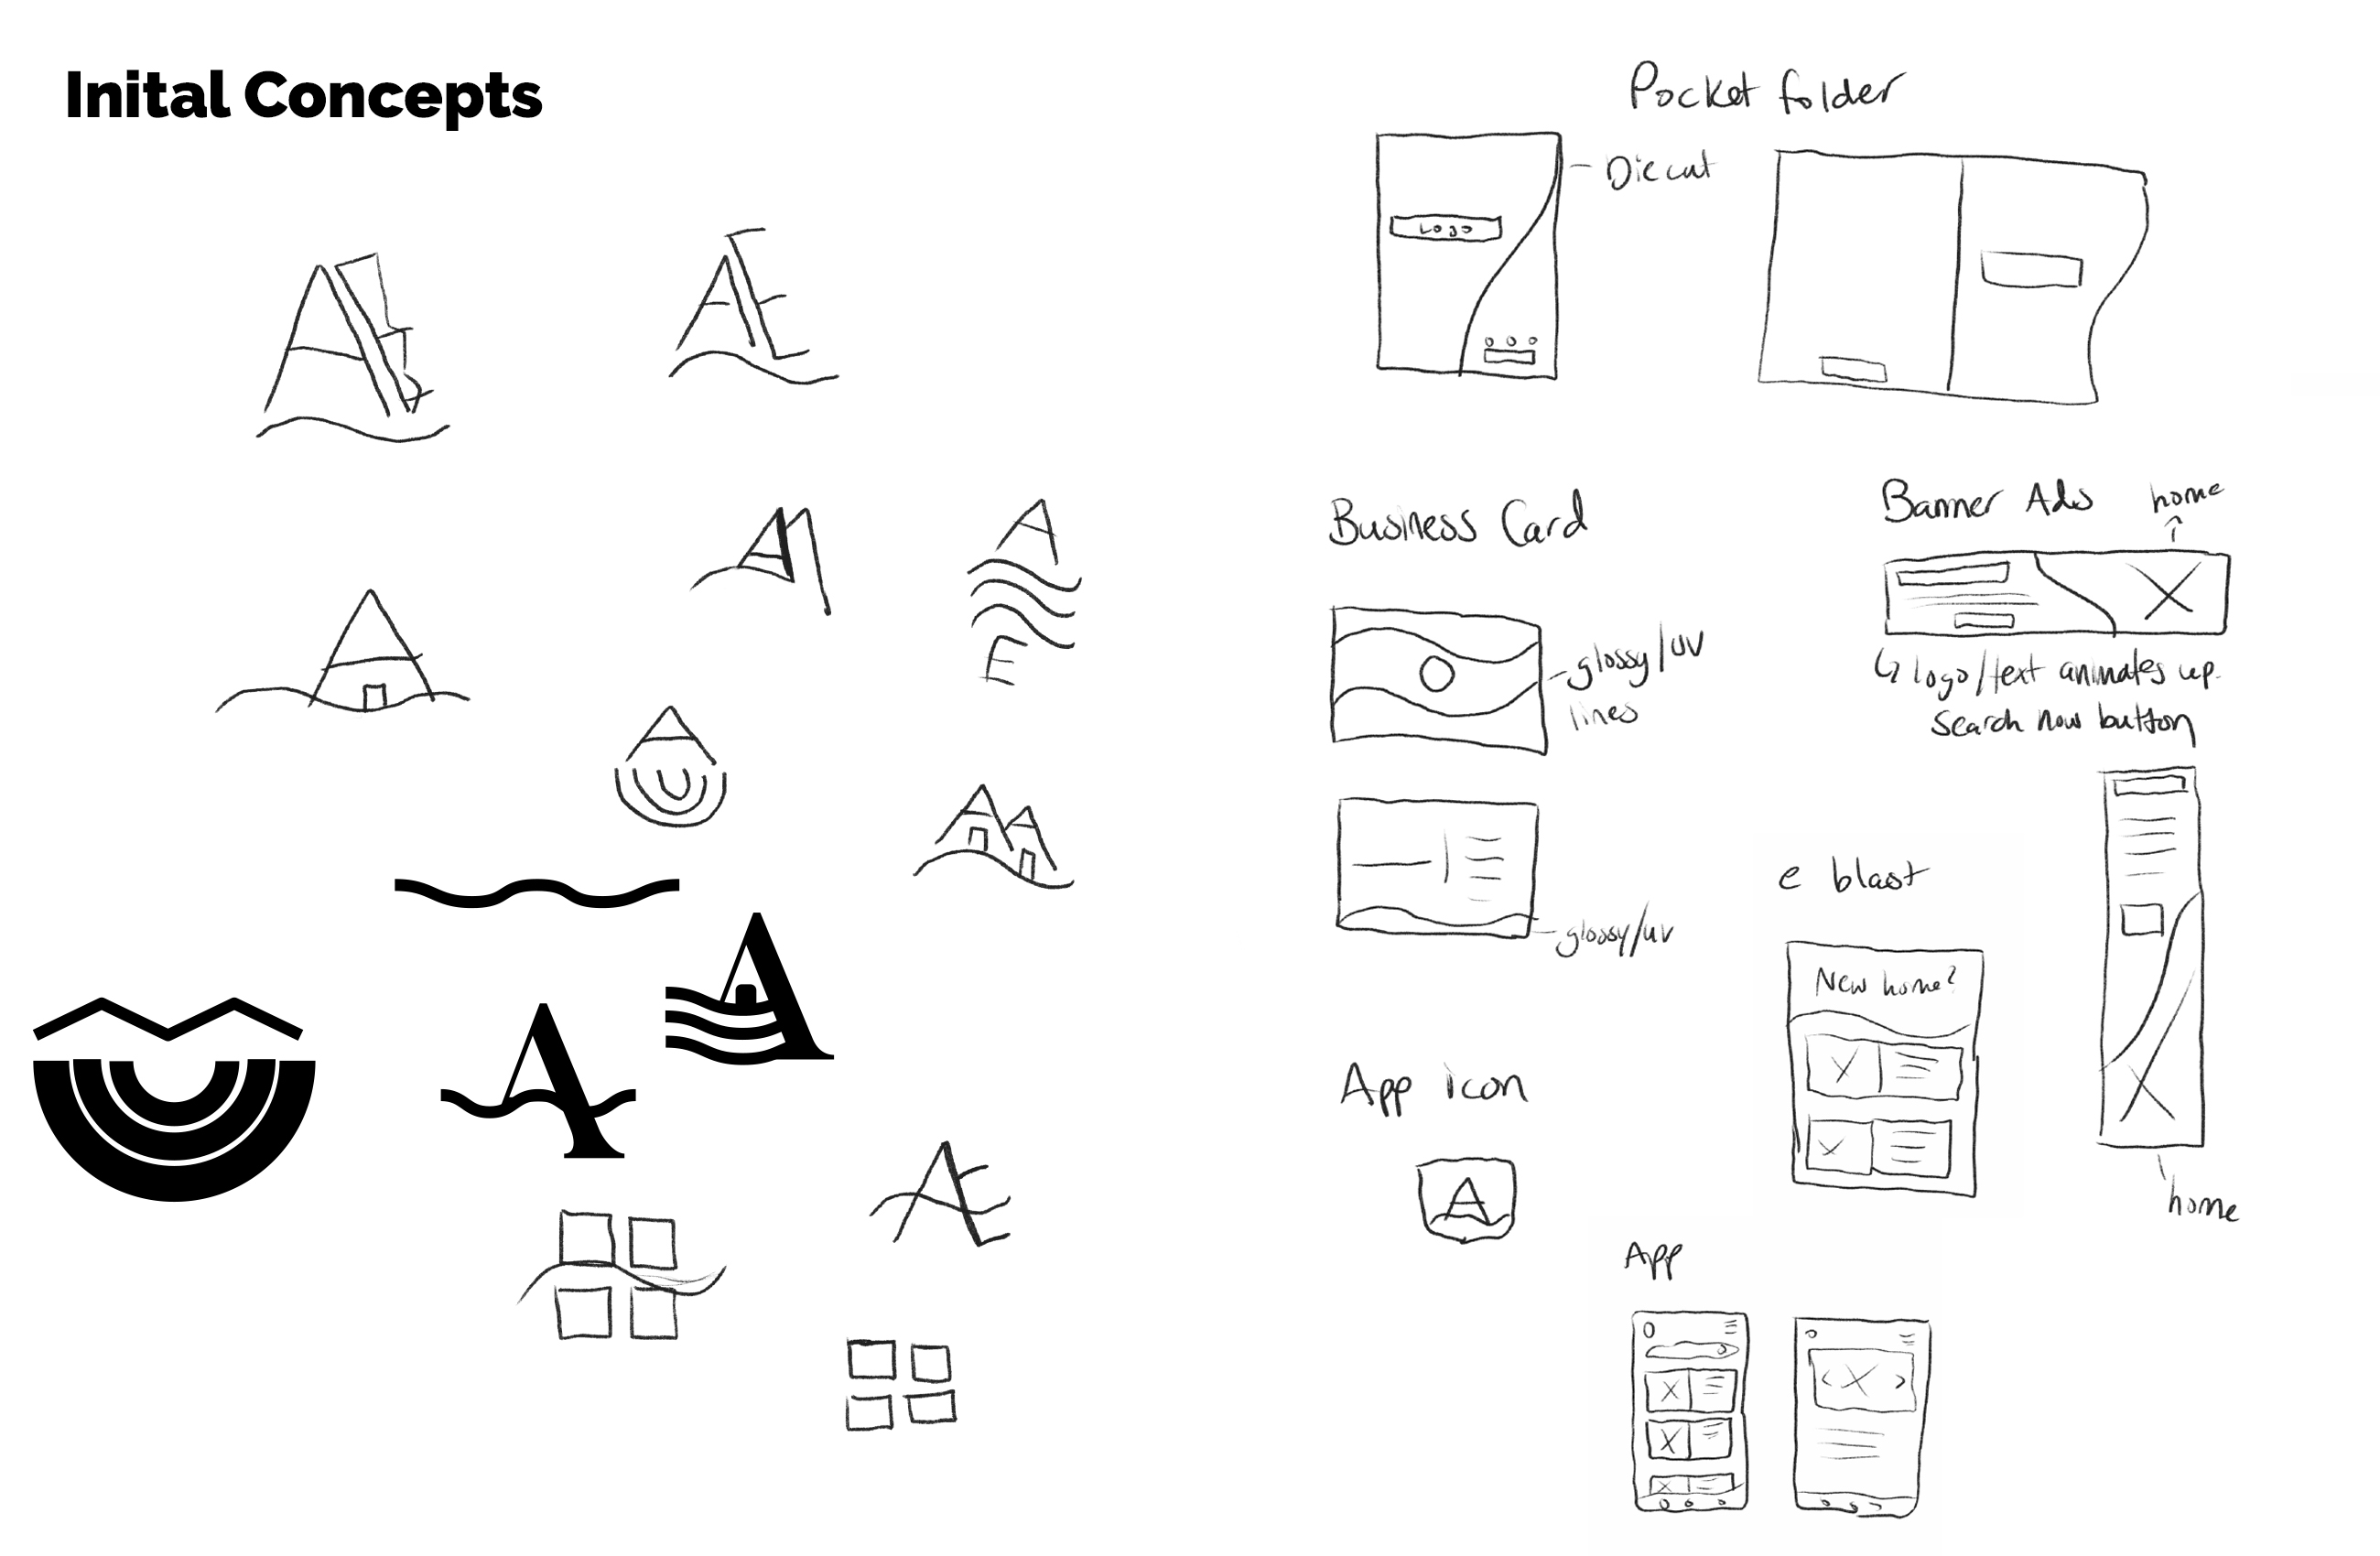 Inital Concepts
Pocket folder
Logo
Die cut
Business Card
glossy/uv
lines
glossy/uv
Banner Ads
home
logo/text animates up.
Search now button
home
e blast
New home?
App icon
A
App
A
E
A
A
Æ